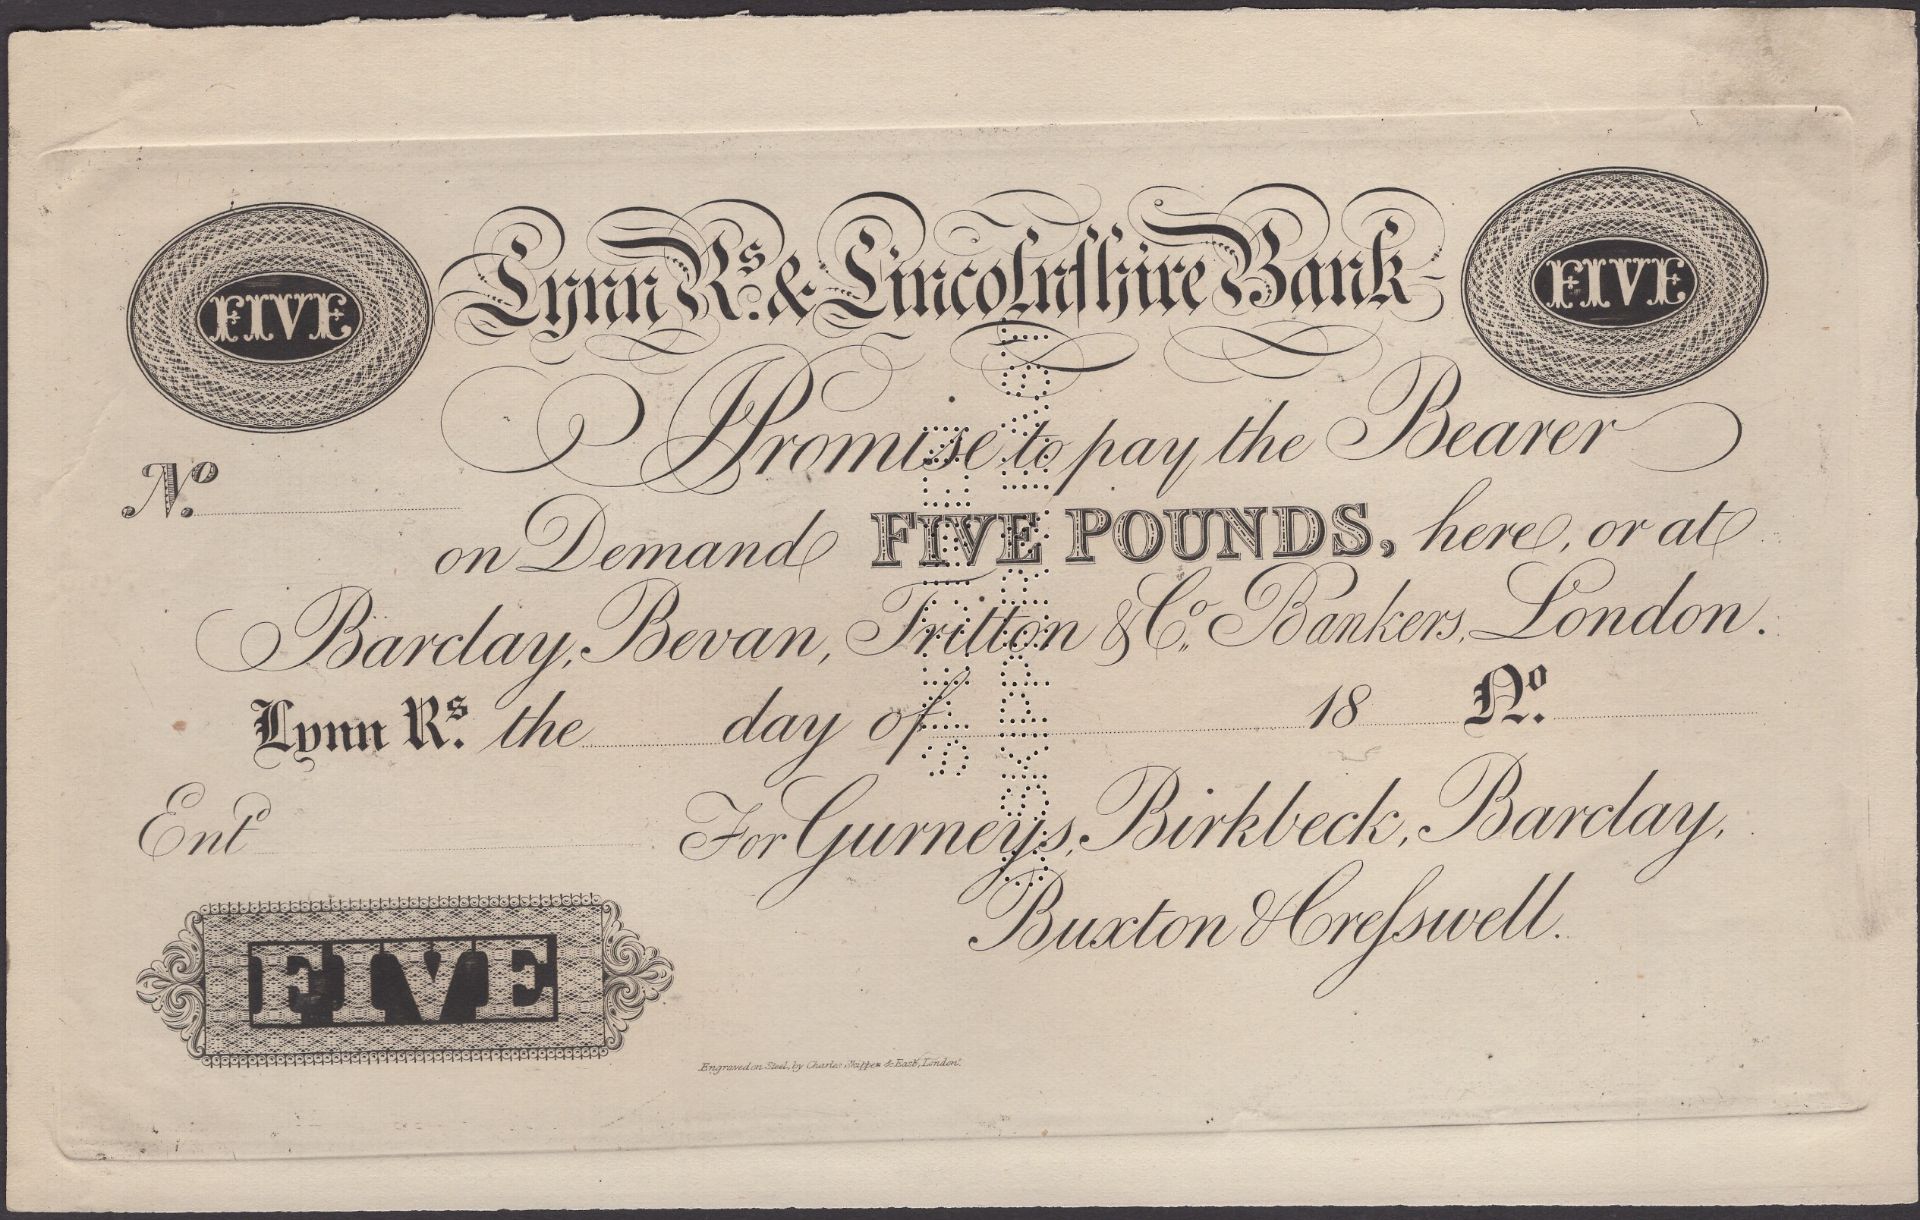 FIVE
Lynn Rs. & Lincolnſhire Bank
FIVE
Promise to pay the Bearer
No.
on Demand FIVE POUNDS, here, or at
Barclay, Bevan, Tritton & Co. Bankers, London.
Lynn Rs. the day of 18 No.
Entd
For Gurneys, Birkbeck, Barclay,
Buxton & Creſswell.
FIVE
Engraved on Steel, by Charles Skipper & East, London.